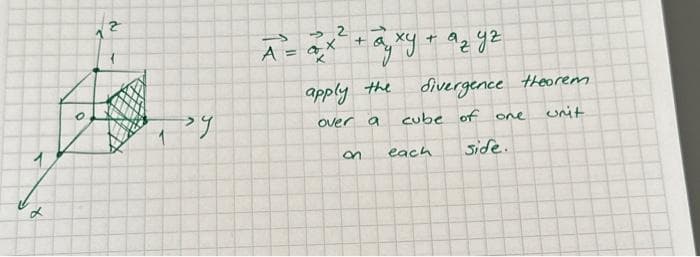 z
1
A⃗ = a⃗ₓx² + a⃗ᵧxy + a_z yz
apply the divergence theorem
0
y
over a cube of one unit
1
1
on each side.
x